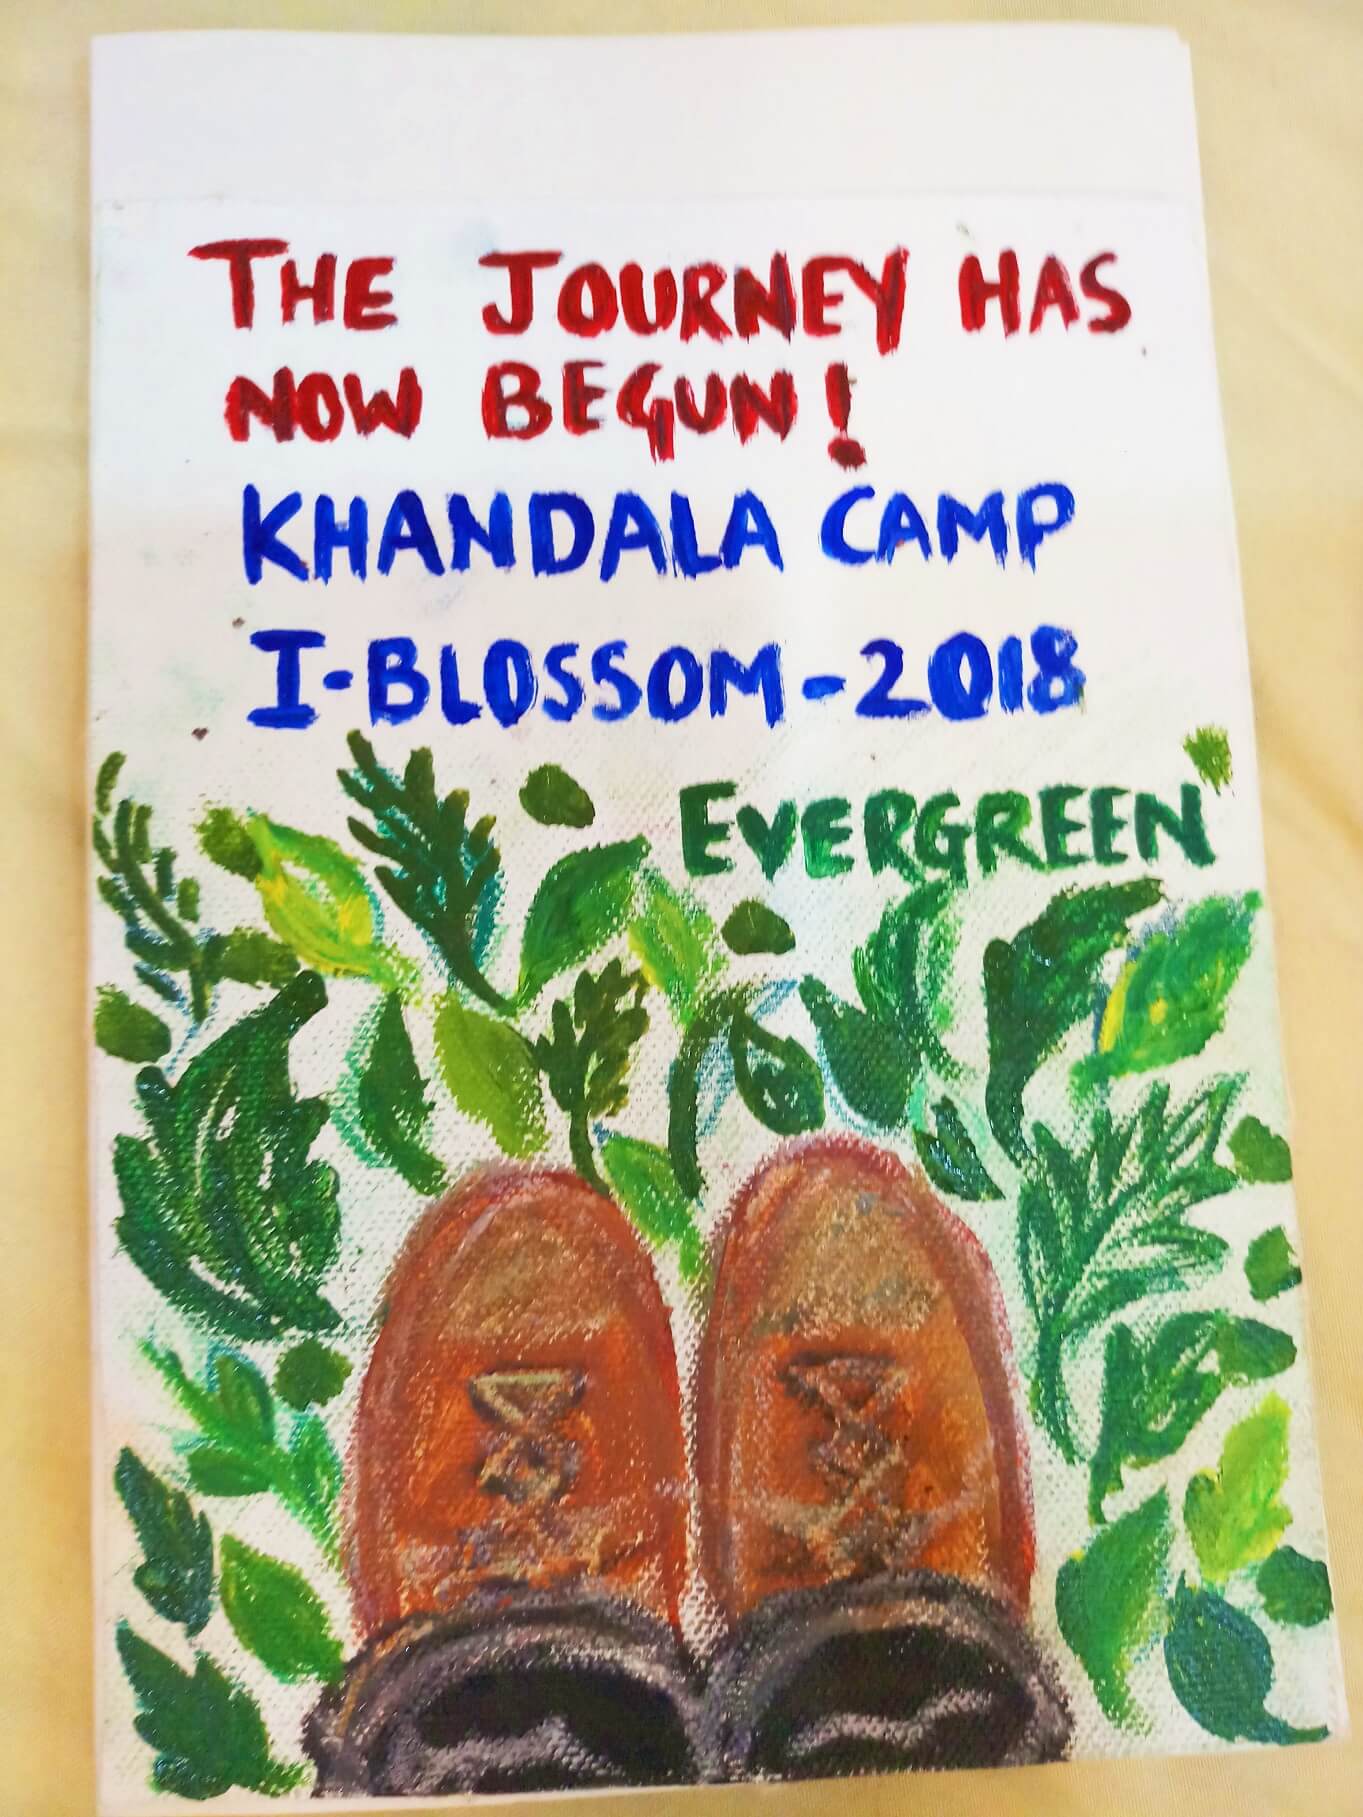 THE JOURNEY HAS
NOW BEGUN!
KHANDALA CAMP
I-BLOSSOM-2018
EVERGREEN